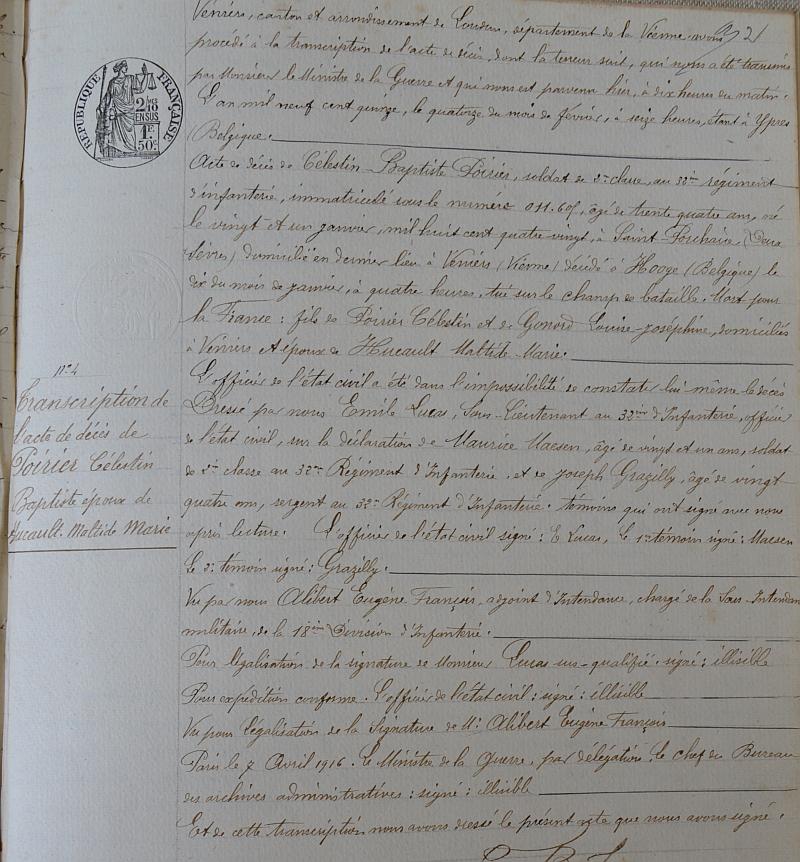 Véniers, canton et arrondissement de Loudun, département de la Vienne, avons
procédé à la transcription de l'acte de décès, dont la teneur suit, qui nous a été transmis
par Monsieur le Ministre de la Guerre et qui nous est parvenu hier, à dix heures du matin.
L'an mil neuf cent quinze, le quatorze du mois de février, à seize heures, étant à Ypres
(Belgique.
RÉPUBLIQUE FRANÇAISE
2/10ES
EN SUS
1F
50c
Acte de décès de Célestin Baptiste Poirier, soldat de 2e classe, au 32ème régiment
d'infanterie, immatriculé sous le numéro 011.601, âgé de trente quatre ans, né
le vingt et un janvier, mil huit cent quatre vingt, à Saint Porchaire, (Deux
Sèvres) domicilié en dernier lieu à Véniers (Vienne) décédé à Hooge (Belgique) le
dix du mois de janvier, à quatre heures, tué sur le champ de bataille. Mort pour
la France : fils de Poirier Célestin et de Gonord Louise-Joséphine, domiciliés
à Véniers et époux de Hucault Maltide-Marie.
n°4
Transcription de
l'acte de décès de
Poirier Célestin
Baptiste époux de
Hucault. Maltide Marie
L'officier de l'état civil a été dans l'impossibilité de constater lui même le décès
Dressé par nous Emile Lucas, Sous-Lieutenant au 32ème d'Infanterie, officier
de l'état civil, sur la déclaration de Maurice Maesen, âgé de vingt et un ans, soldat
de 2e classe au 32ème Régiment d'Infanterie, et de Joseph Grazilly, âgé de vingt
quatre ans, sergent au 32e Régiment d'Infanterie : témoins qui ont signé avec nous
après lecture. L'officier de l'état civil signé : E Lucas, Le 1er témoin signé : Maesen
Le 2e témoin signé : Grazilly.
Vu par nous Alibert Eugène François, adjoint d'Intendance, chargé de la Sous-Intendan
militaire, de la 18ème Division d'Infanterie.
Pour légalisation de la signature de Monsieur Lucas sus-qualifié : signé : illisible
Pour expédition conforme : L'officier de l'état civil : signé : illisible
Vu pour légalisation de la Signature de Mr Alibert Eugène François
Paris le 7 Avril 1916. Le Ministre de la Guerre, par délégation, le chef du Bureau
des archives administratives : signé : illisible
Et de cette transcription nous avons dressé le présent acte que nous avons signé.